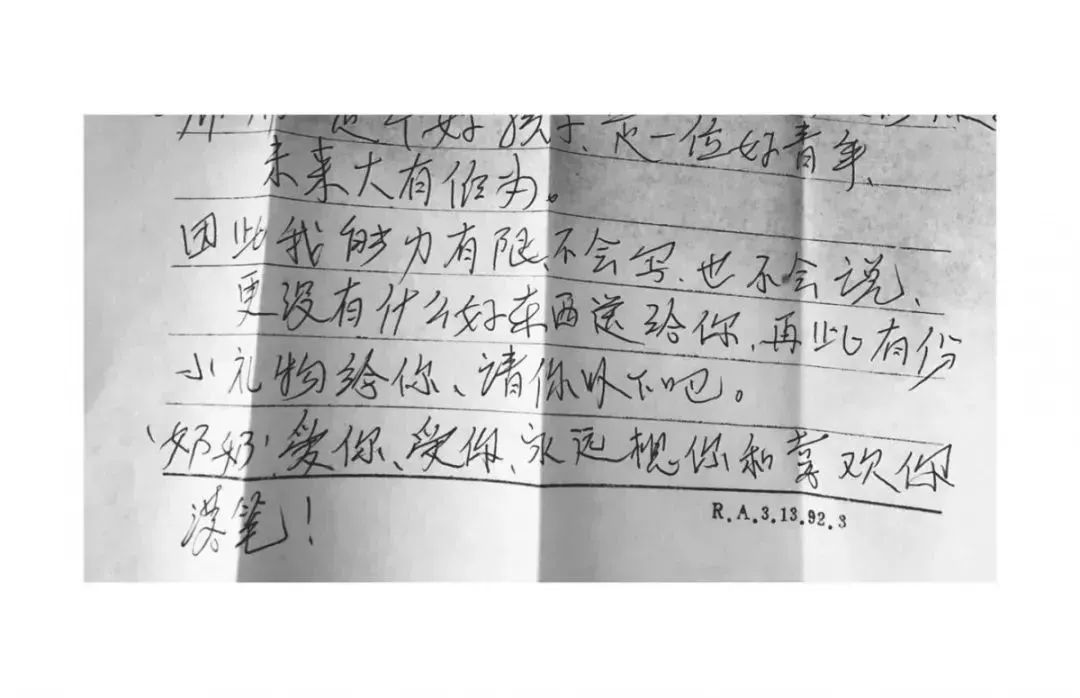 这个好孩子、是一位好青年、
未来大有作为。
因此我能力有限、不会写、也不会说、
更没有什么好东西送给你、再此有份
小礼物给你、请你收下吧。
奶奶、爱你、爱你、永远想你和喜欢你
R.A.3.13.92.3
笔！